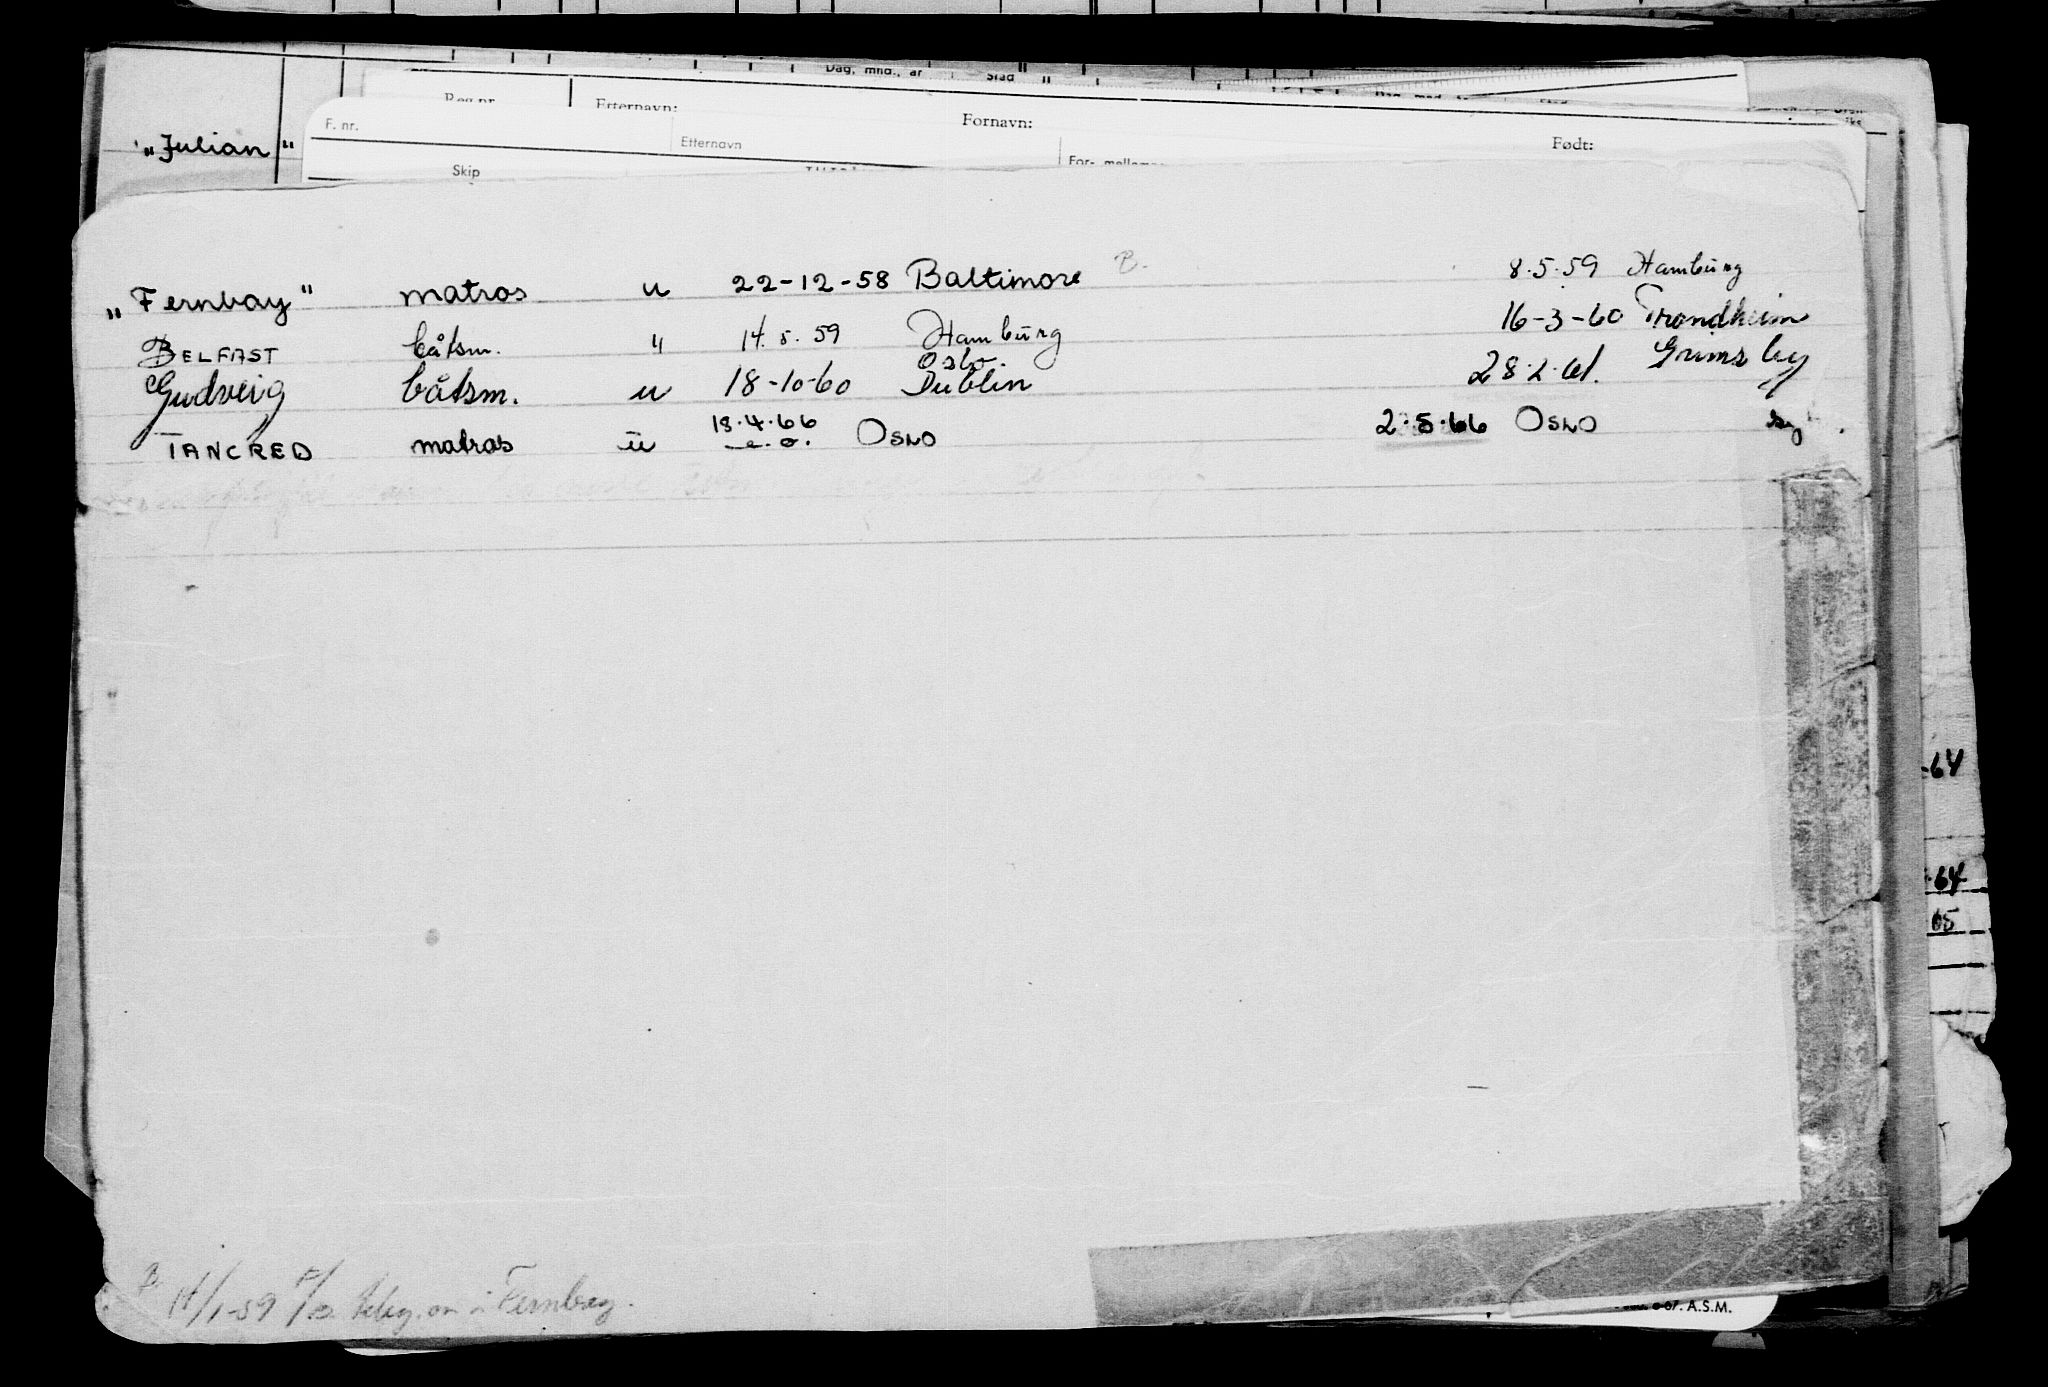 Dag, mnd., år Stad
Reg.nr. Etternavn: Fornavn: Født:
F. nr. Etternavn For-
„Julian"
Skip
„Fernbay" matros u 22-12-58 Baltimore B. 8.5.59 Hamburg
BELFAST båtsm. " 14.5.59 Hamburg 16-3-60 Trondheim
Oslo.
Gudveig båtsm. u 18-10-60 Dublin 28.2.61. Grimsby
TANCRED matros u 18.4.66 OSLO 2.5.66 OSLO
-64
-64
65
14/1-59 Fernbay.
A.S.M.